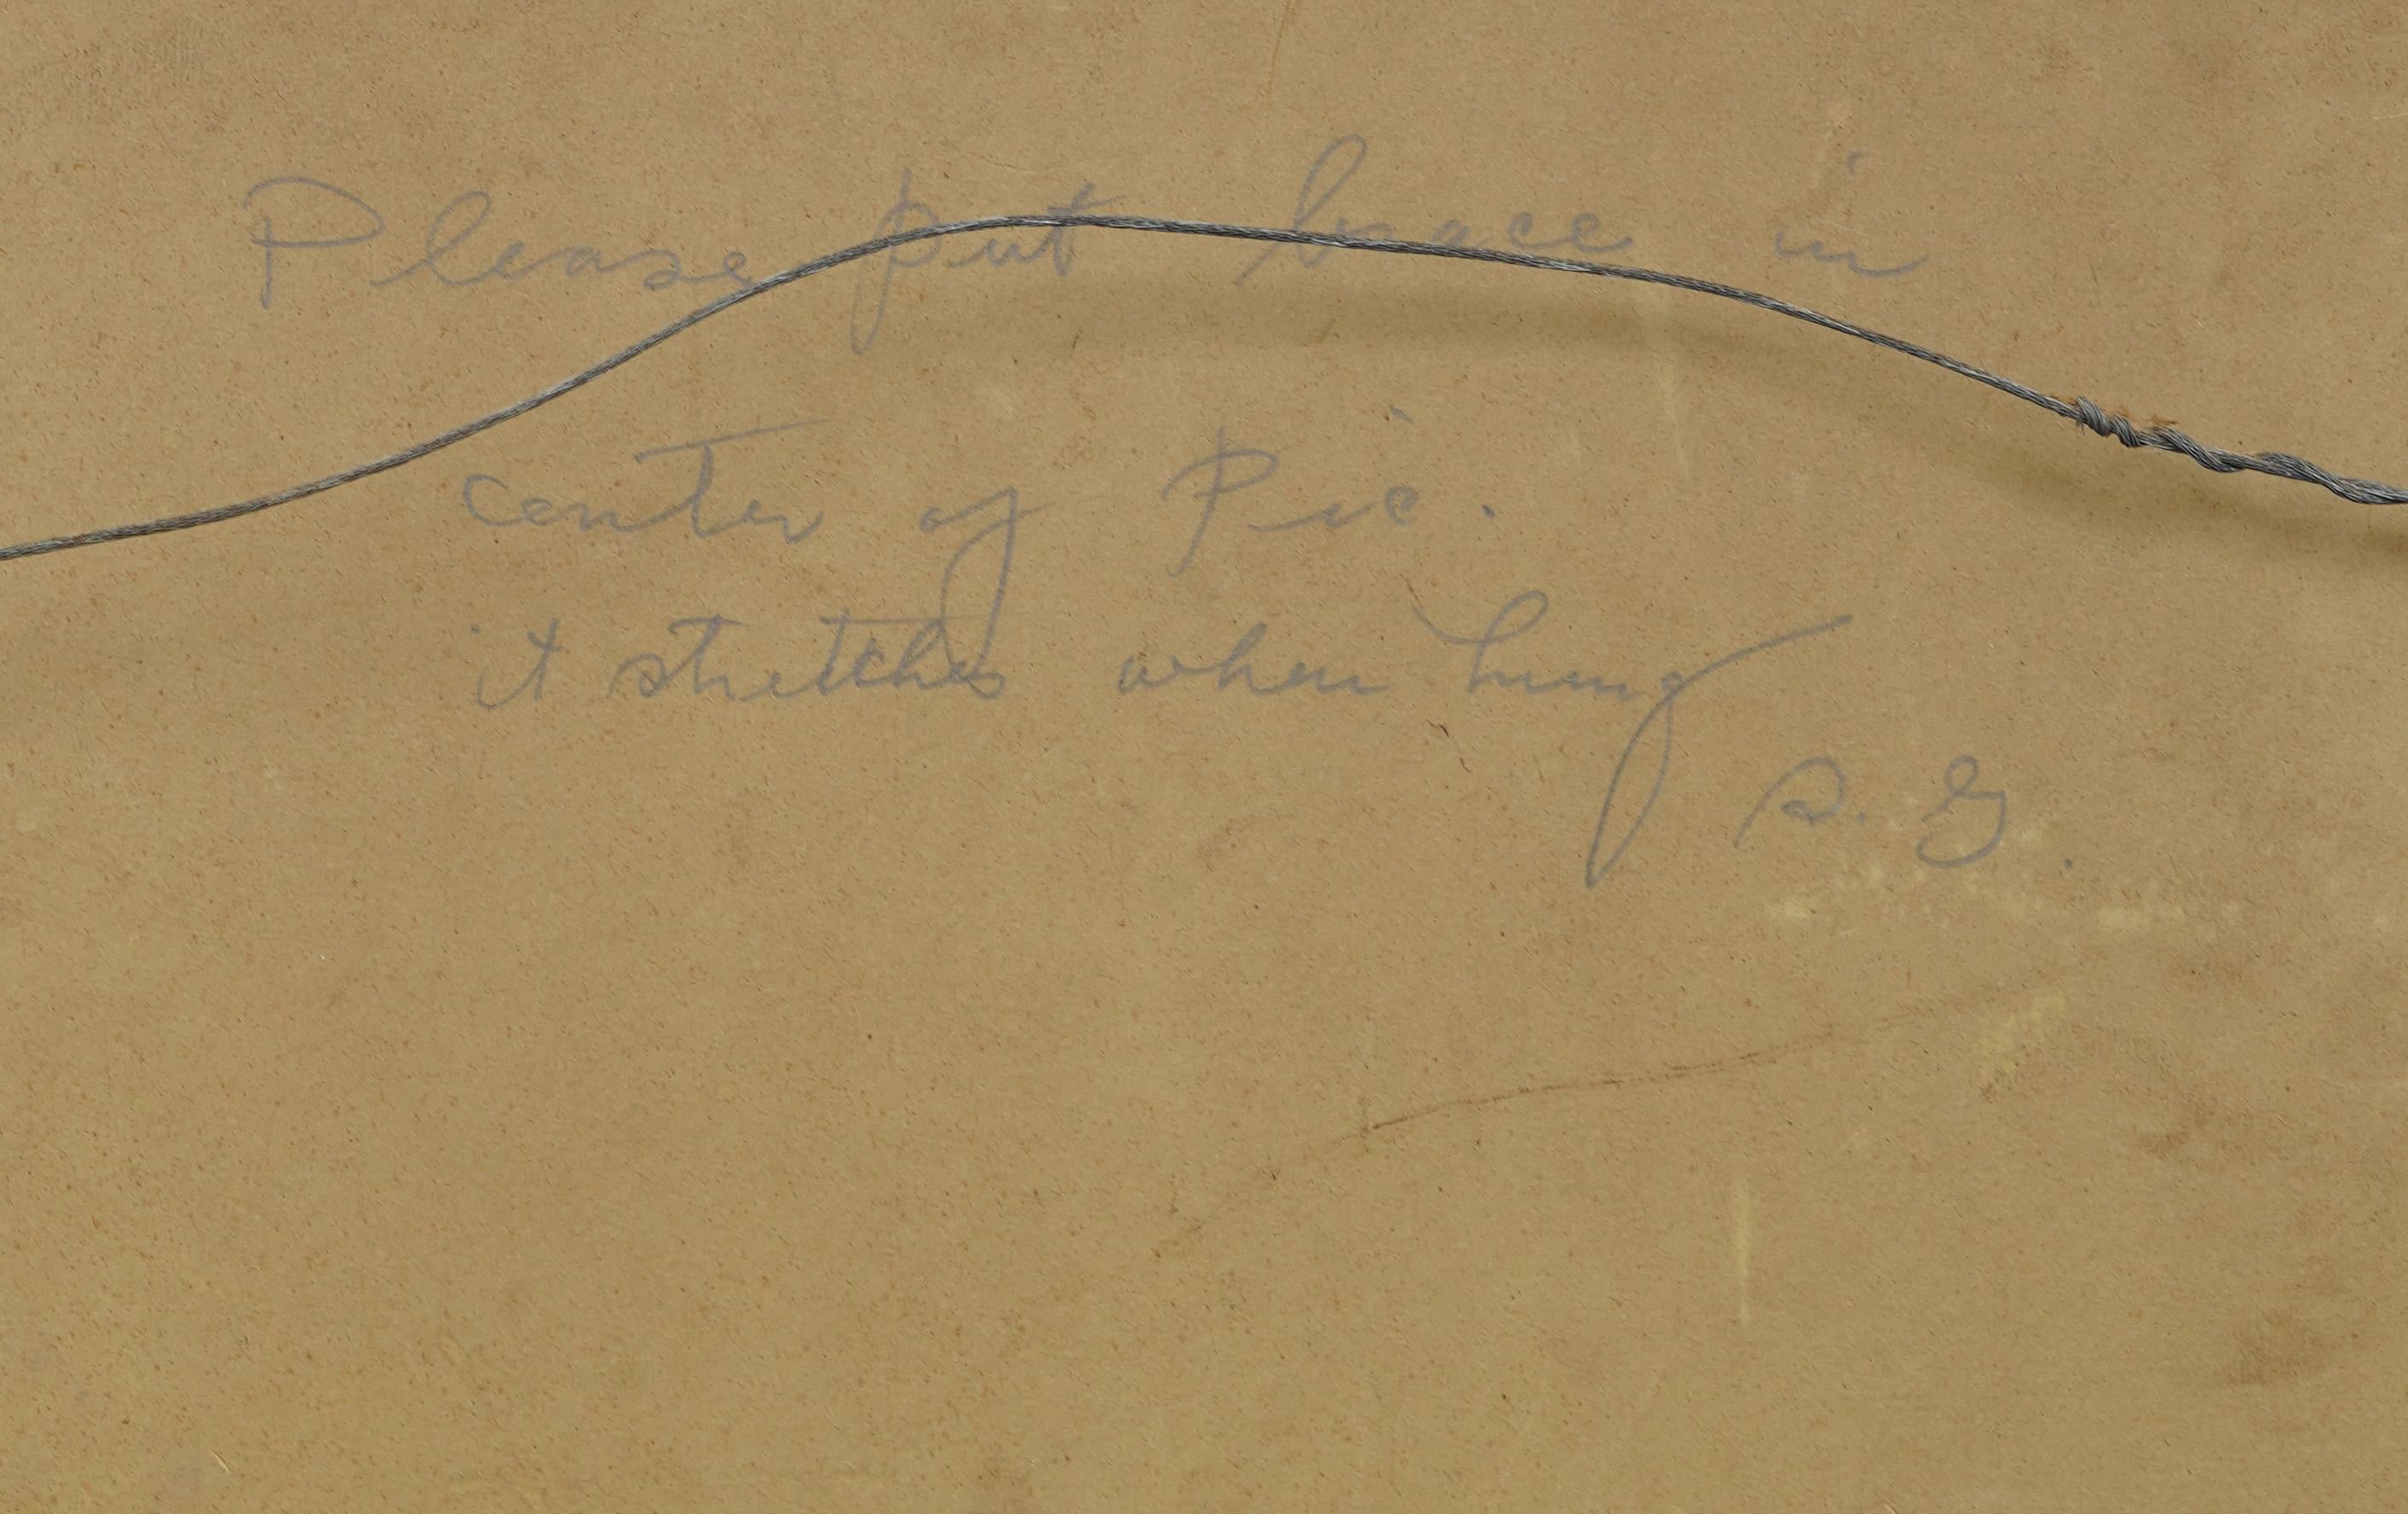 Please put brace in
center of Pic.
it stretches when hung
S. G.